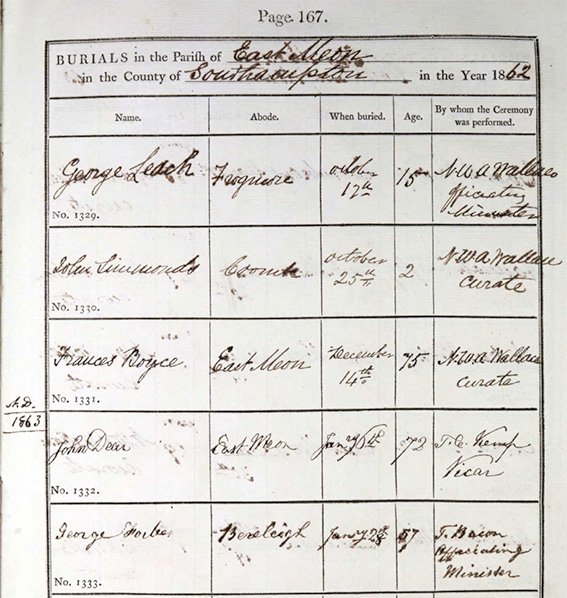 Page. 167.
BURIALS in the Parish of East Meon
in the County of Southampton in the Year 1862
Name. Abode. When buried. Age. By whom the Ceremony was performed.
George Leach Frogmore October 17th 15 N.W.A Wallace officiating Minister
No. 1329.
John Simmonds Coombe October 25th 2 N.W.A Wallace curate
No. 1330.
Frances Boyce East Meon December 14th 75 N.W.A Wallace curate
No. 1331.
A.D.
1863
John Dear East Meon Jany 6th 72 T.C. Kemp Vicar
No. 1332.
George Forbes Bereleigh Jany 57 T. Bacon officiating Minister
No. 1333.